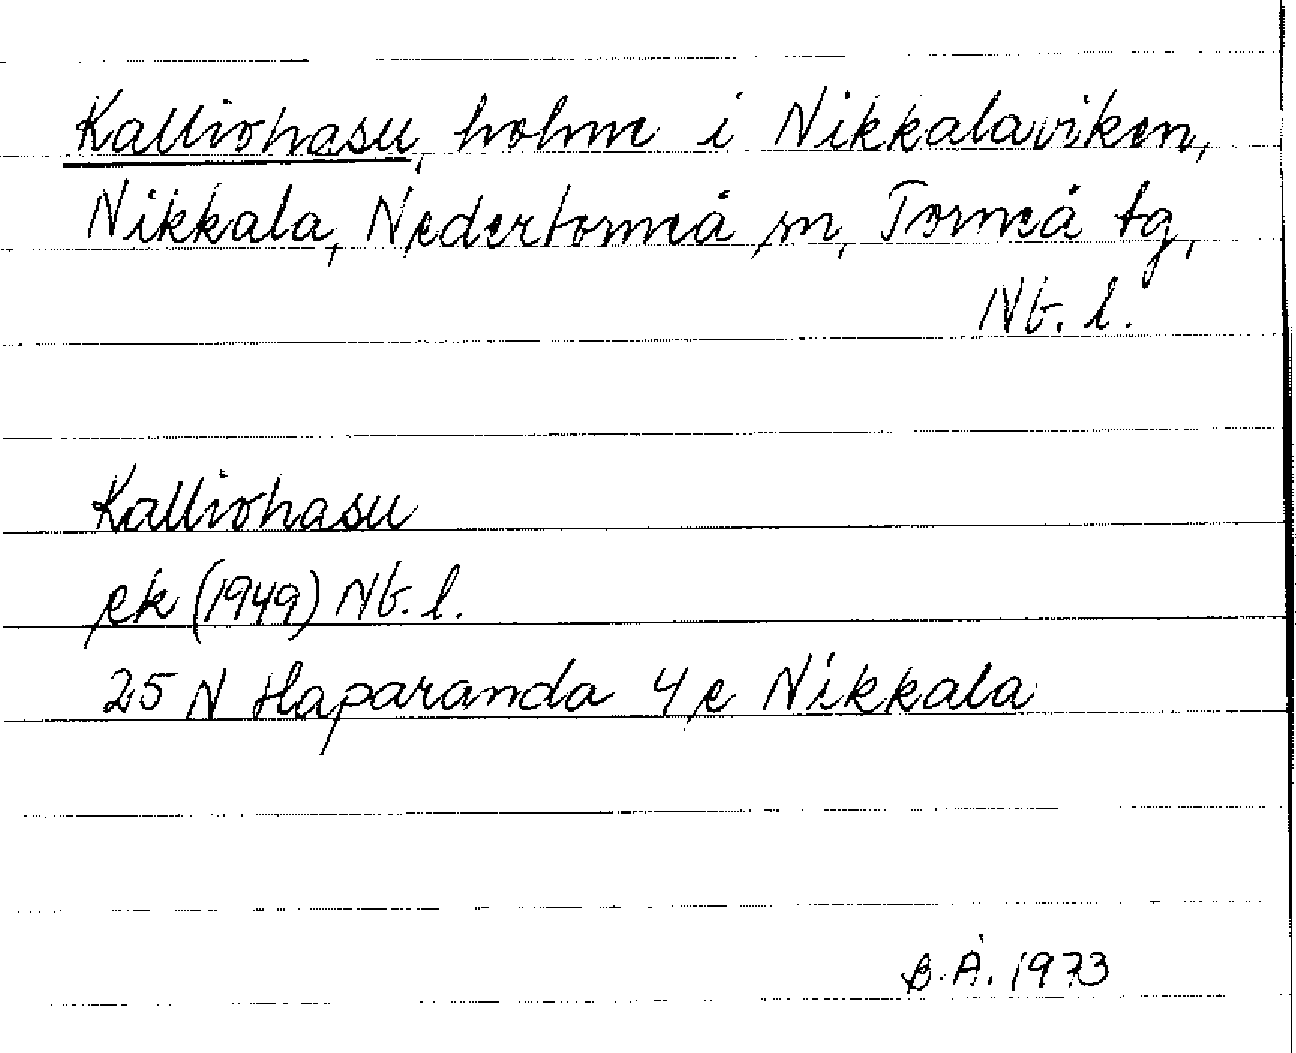 Kalliohasu, holme i Nikkalaviken,
Nikkala, Nedertorneå sn, Torneå tg,
Nb. l.
Kalliohasu
ek (1949) Nb. l.
25 N Haparanda 4 e Nikkala
B.Å. 1973